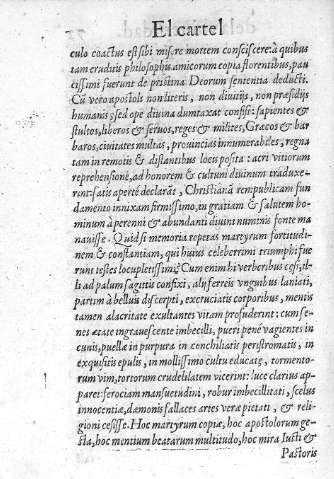 El cartel
culo coactus est sibi misere mortem consciscere: à quibus
tam eruditis philosophis, amicorum copia florentibus, pau
cissimi fuerunt de pristina Deorum sententia deducti.
Cū vero apostoli non literis, non divitijs, non præsidijs
humanis, sed ope divina dumtaxat confisi: sapientes &
stultos, liberos & servos, reges & milites, Græcos & bar
baros, civitates multas, provincias innumerabiles, regna
tam in remotis & distantibus locis posita: acri vitiorum
reprehensione, ad honorem & cultum divinum traduxe-
runt: satis apertè declarāt, Christianā rempublicam fun
damento innixam firmissimo, in gratiam & salutem ho-
minum à perenni & abundanti divini numinis fonte ma
navisse. Quid si memoria repetas martyrum fortitudi-
nem & constantiam, qui huius celeberrimi triumphi fue
runt testes locupletissimi? Cum enim hi verberibus cæsi, il-
li ad palum sagittis confixi, alij ferreis ynguibus laniati,
partim à belluis discerpti, excruciatis corporibus, mentis
tamen alacritate exultantes vitam profuderint: cum se-
nes ætate ingravescente imbecilli, pueri penè vagientes in
cunis, puellæ in purpura in conchiliatis peristromatis, in
exquisitis epulis, in mollissimo cultu educatę, tormento-
rum vim, tortorum crudelitatem vicerint: luce clarius ap
paret: ferociam mansuetudini, robur imbecillitati, scelus
innocentiæ, dæmonis fallaces artes veræ pietati, & reli-
gioni cesisse. Hoc martyrum copiæ, hoc apostolorum ge-
sta, hoc mentium beatarum multitudo, hoc mira Iusti &
Pastoris